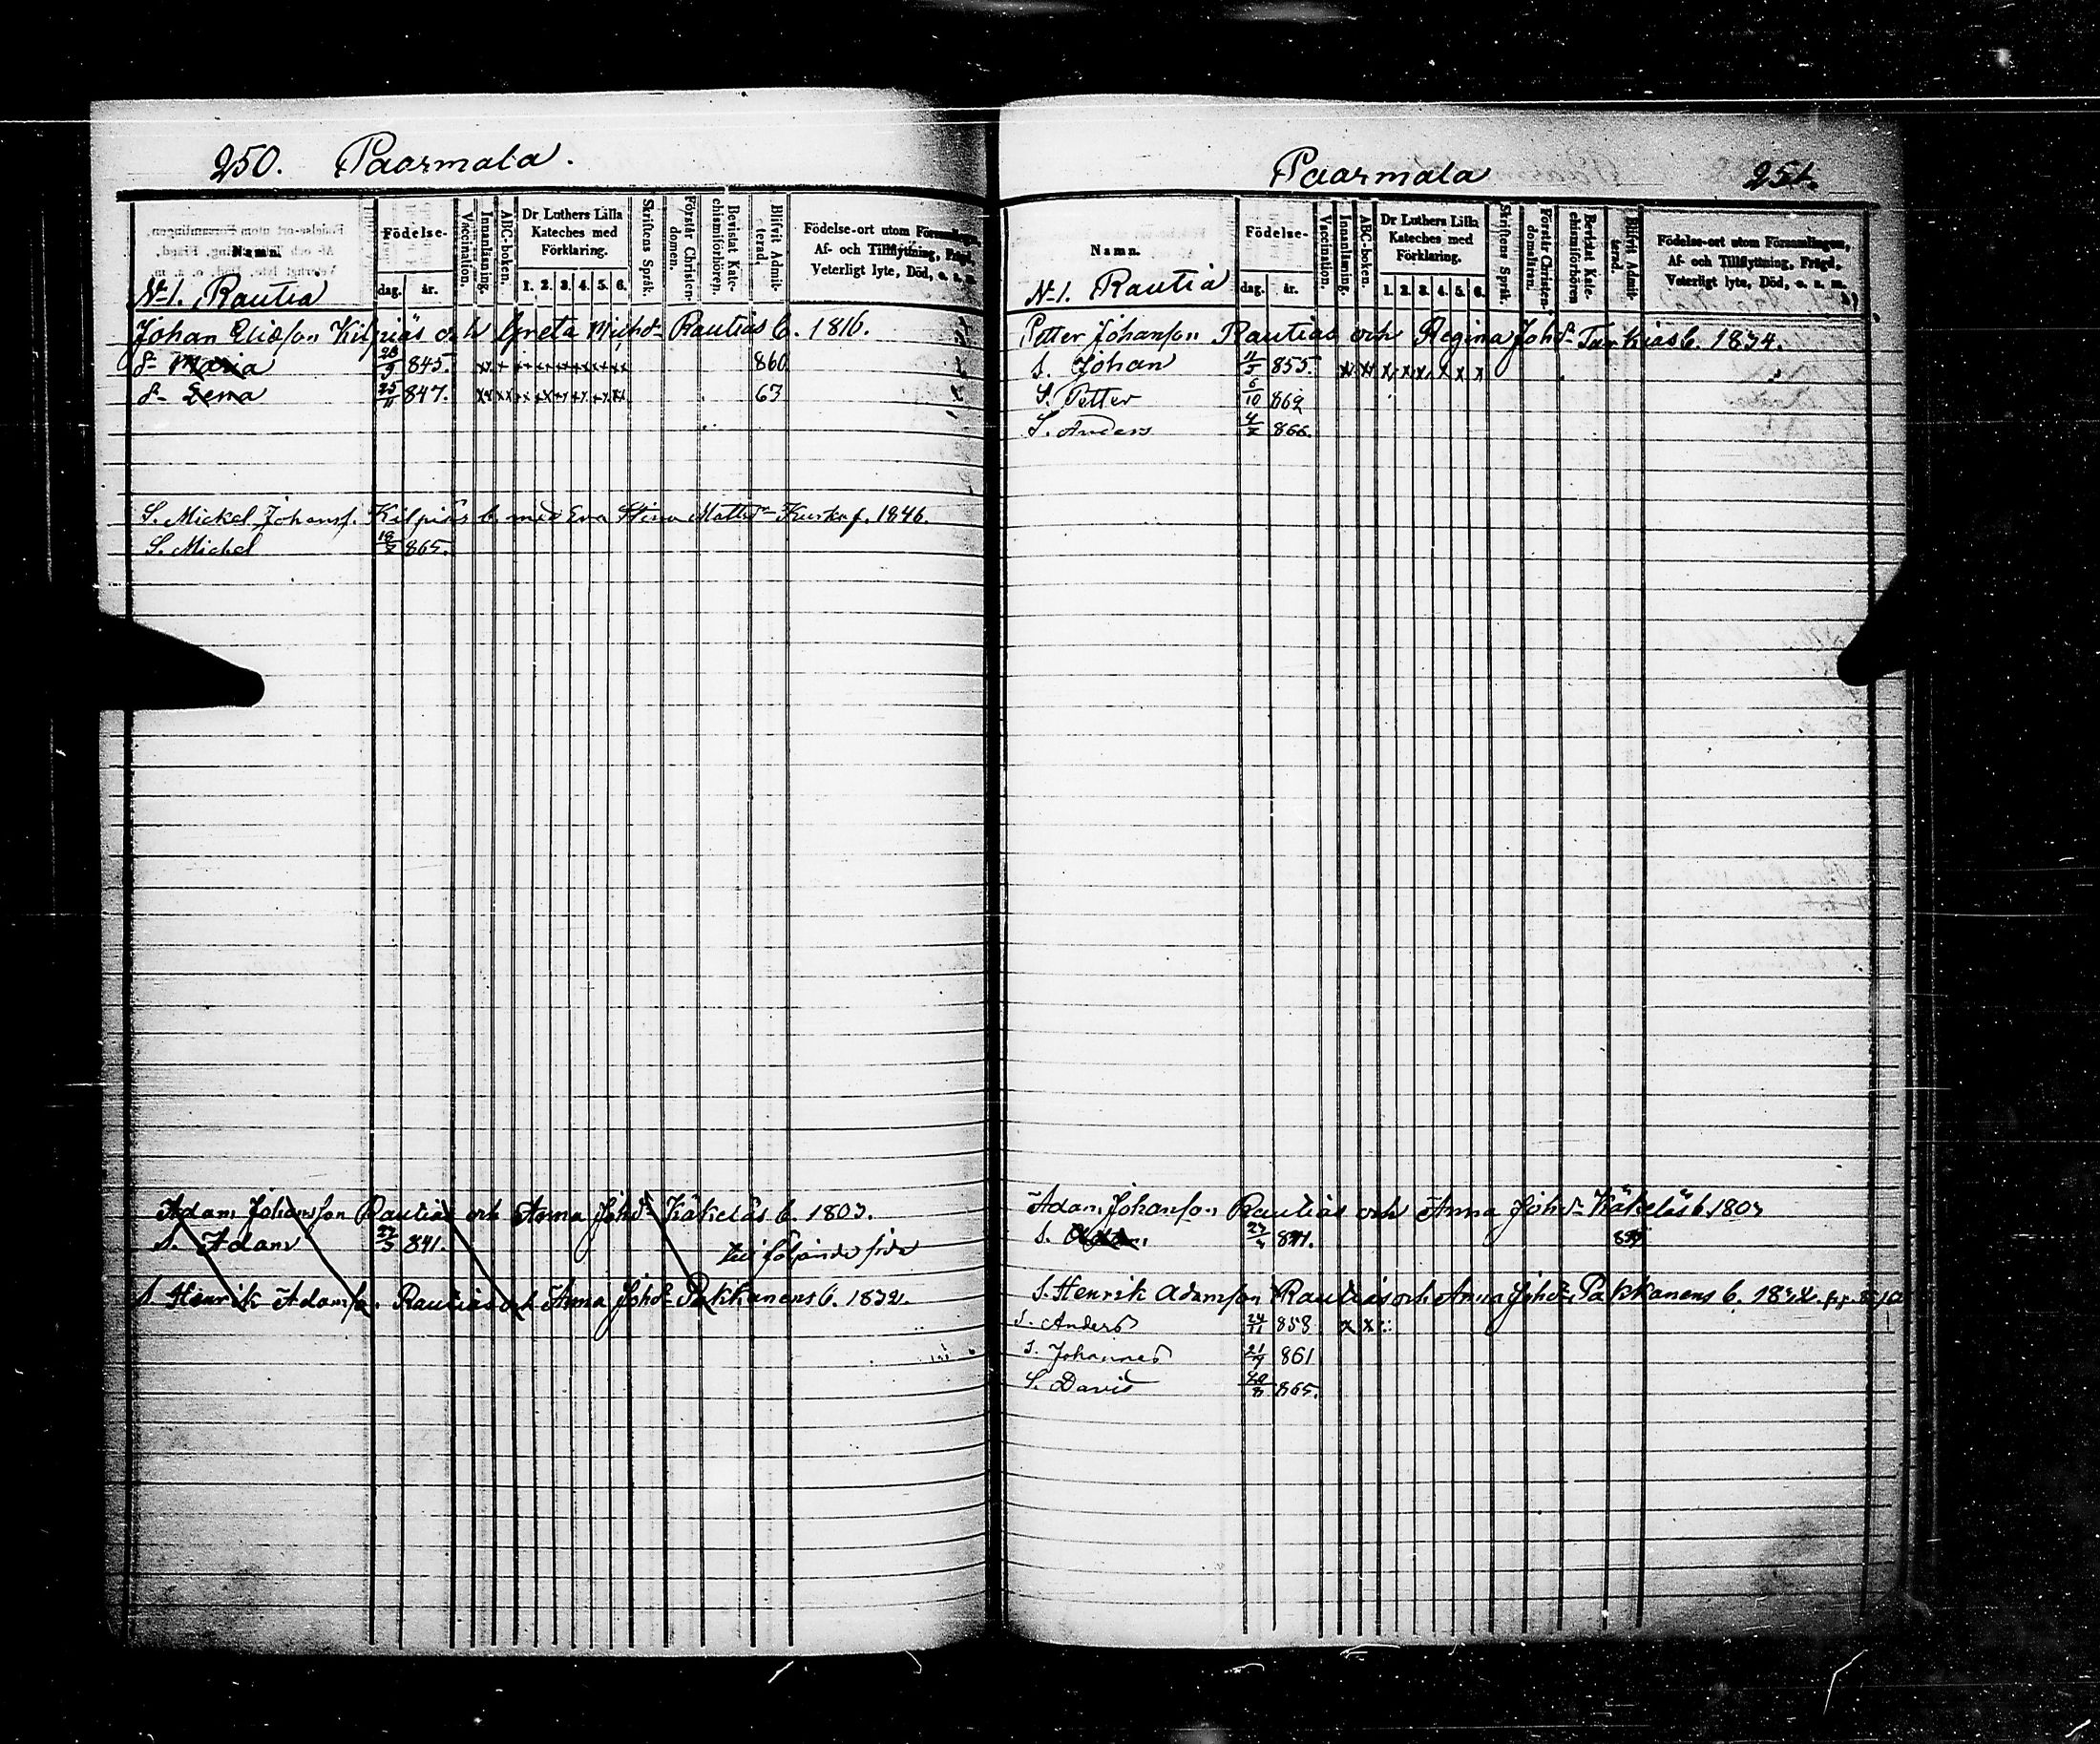 250. Paarmala.
Namn.
Födelse-
dag. år.
Vaccination.
Innanläsning.
ABC-boken.
Dr Luthers Lilla Kateches med Förklaring.
1. 2. 3. 4. 5. 6.
Skriftens Språk.
Förstår Christendomen.
Bevistat Katechismiförhören.
Blifvit Admitterad.
Födelse-ort utom Församlingen,
Af- och Tillflyttning, Frägd,
Veterligt lyte, Död, o. s. m.
N-1. Rautia
Johan Kilpiäs och Greta Michd- Rautias b. 1816.
d- Maria 845. xx + 860
d- Lena 25/11 847. xx xx 63
S. Mickel Johansf. Kilpiäs b. med Eva Stina Mattsd- 1846.
S. Michel 865.
Adam Johansson Rautias och Anna Johd- Käkeläs b. 1803.
S. Adam 841. följande sida
S. Henrik Adamss. Rautias och Anna Johd- Pakkanens b. 1832.
Paarmala 251.
Namn.
Födelse-
dag. år.
Vaccination.
Innanläsning.
ABC-boken.
Dr Luthers Lilla Kateches med Förklaring.
1. 2. 3. 4. 5. 6.
Skriftens Språk.
Förstår Christendomsläran.
Bevistat Katechismiförhören
Blifvit Admitterad.
Födelse-ort utom Församlingen,
Af- och Tillflyttning, Frägd,
Veterligt lyte, Död, o. s. m.
N-1. Rautia
Petter Johansson Rautias och Regina Johd- Turkias b. 1834.
S. Johan 4/5 855. xx xx x x x x x x
S. Petter 6/10 862
S. Anders 866.
Adam Johansson Rautias och Anna Johd- Käkeläs b. 1803
S. 841.
S. Henrik Adamsson Rautias och Anna Johd- Pakkanens b.
S. Anders 24/11 858 x x
S. Johannes 21/9 861
S. David 865.